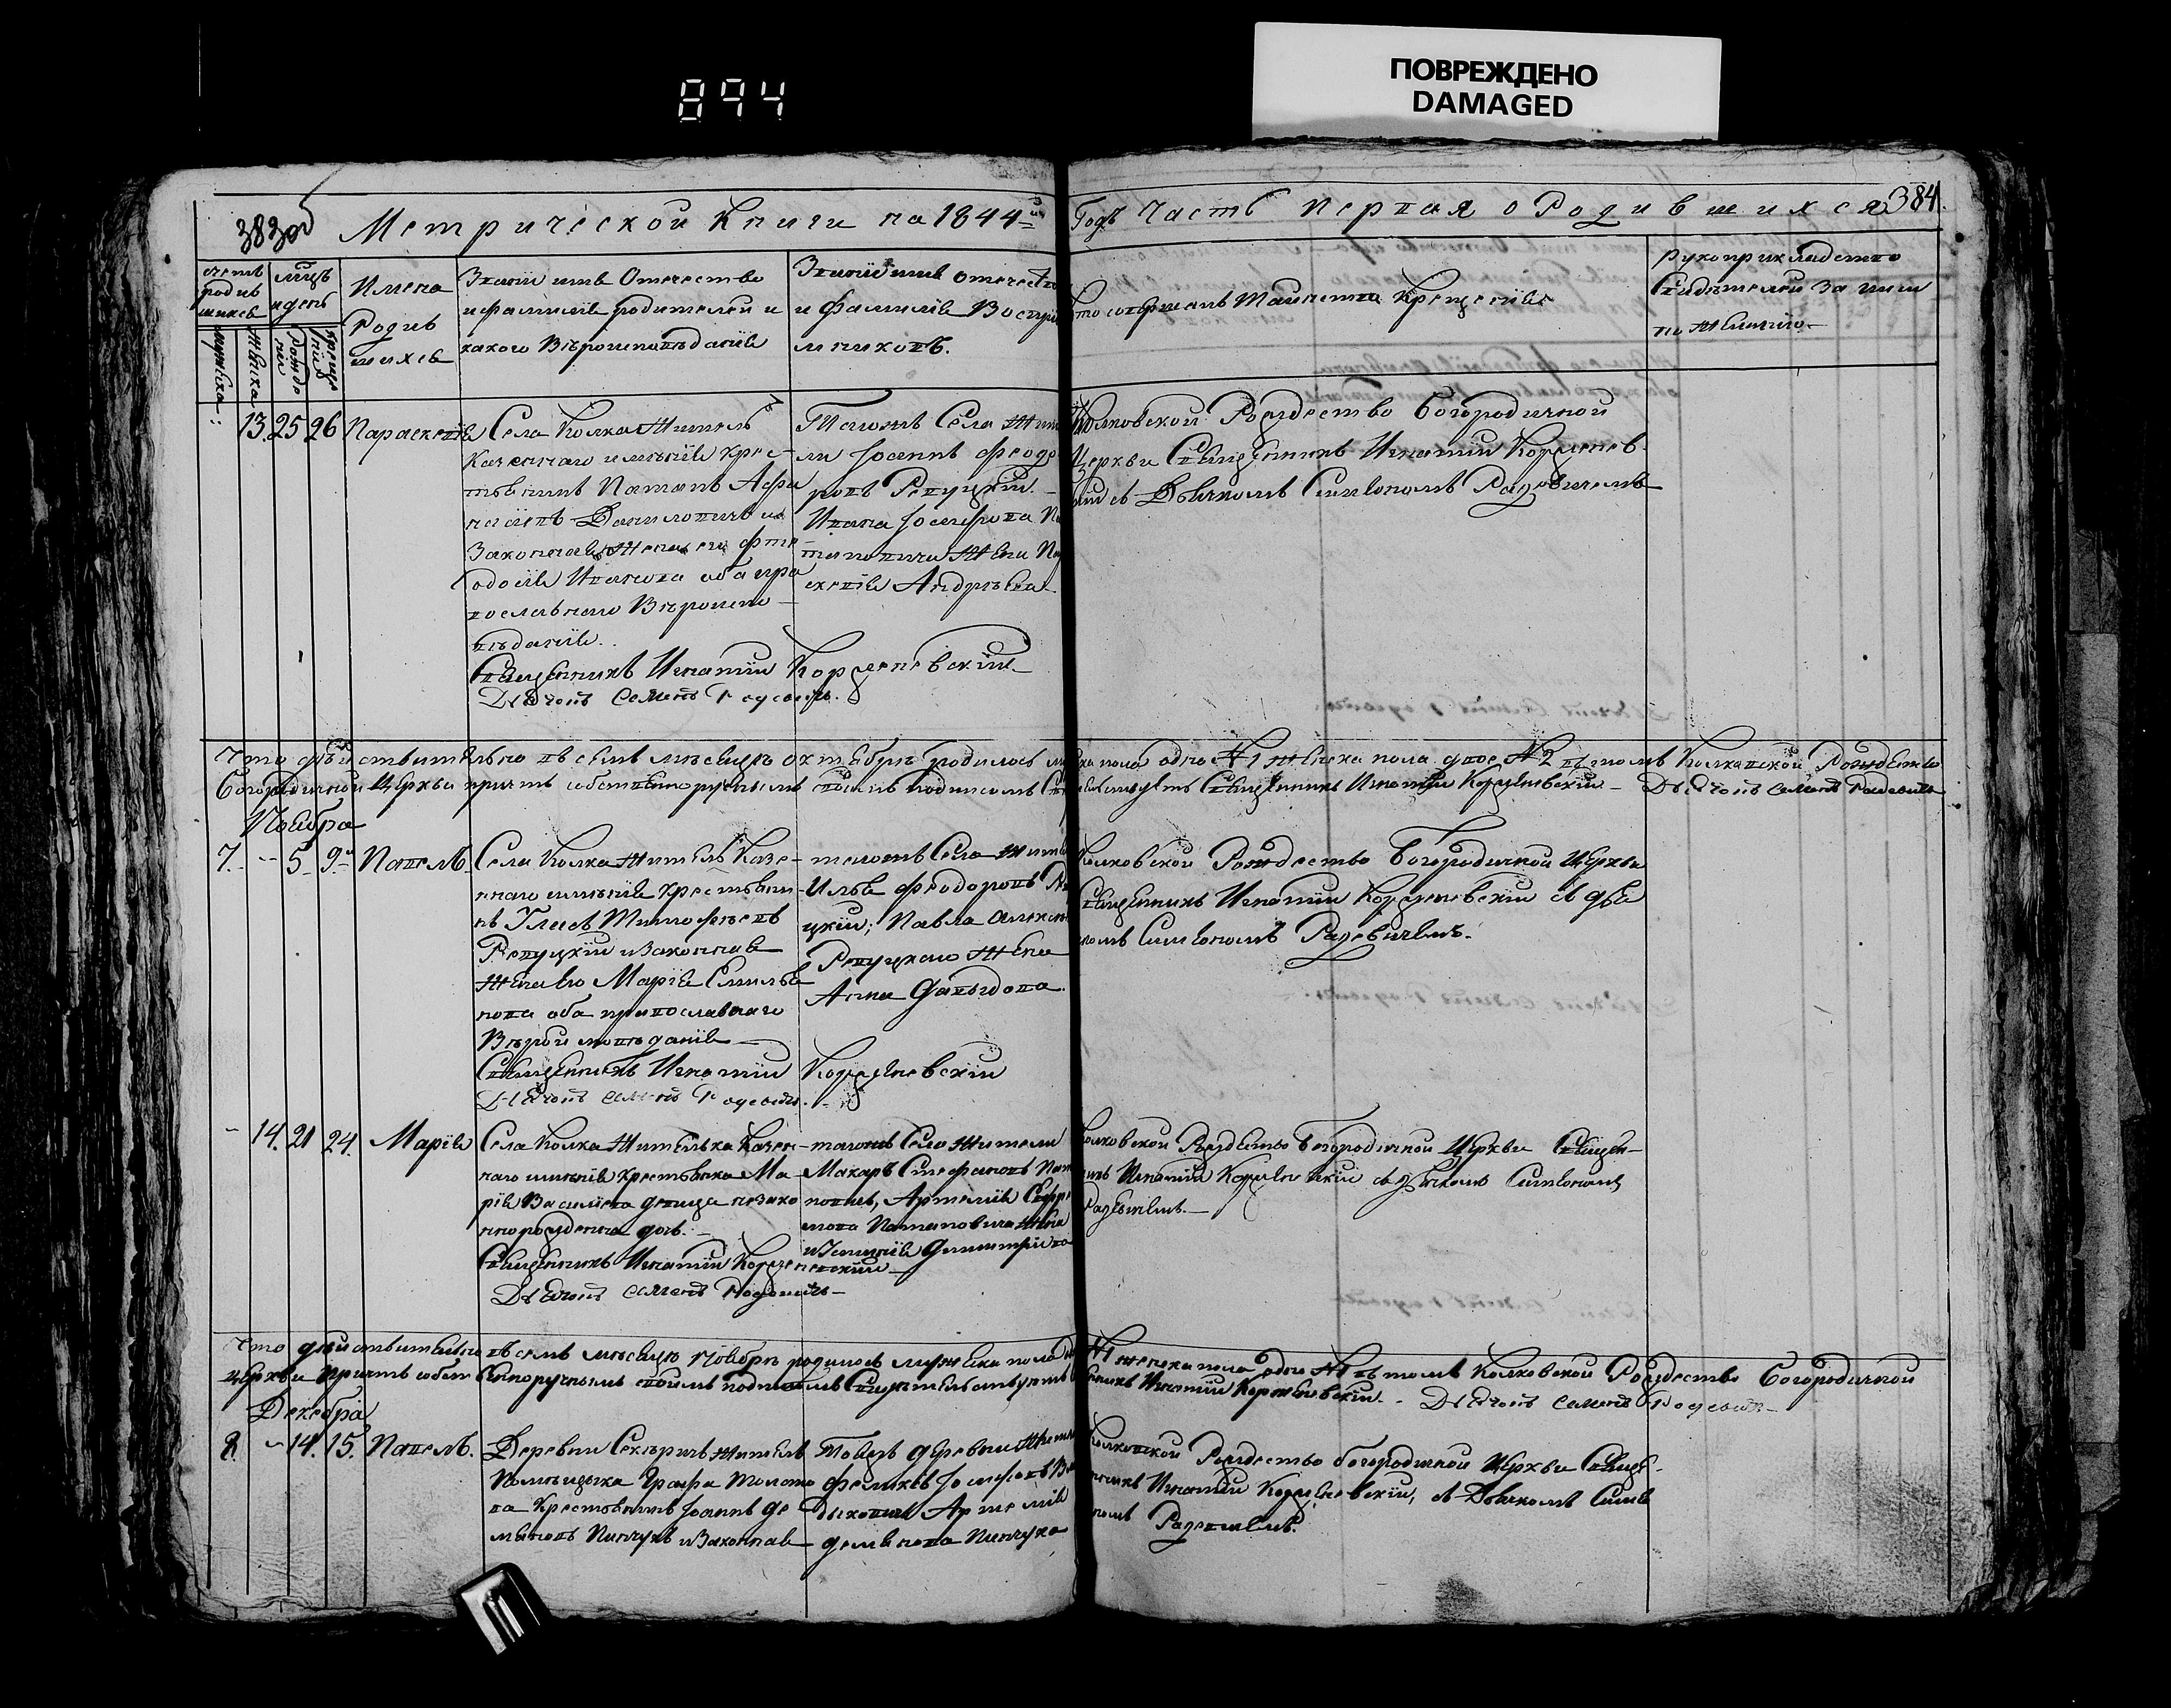 894
ПОВРЕЖДЕНО
DAMAGED
383об Метрической Книги на 1844й Годъ Часть Первая о Родившихся 384.
счетъ родившихся
мужеска
женска
мцъ и день
рожденія
крещенія
Имена
Родив
шихся
Званіи имя Отечество
и фамилія родителей и
какого Вѣроисповѣданія
Званіи имя отечество
и Фамилія Воспріе
мниковъ.
Кто совершалъ Таинство Крещенія
Рукоприкладство
Свидѣтелей за писи
по желанію
13. 25 26 Параскевія
Села Колка житель
Казеннаго имѣнія крес-
тьянинъ Потапъ Афа
насіевъ Даниловичъ и
Законная жена его Фте
одосія Иванова оба пра
вославнаго Вѣроиспо
вѣданія.
Священникъ Игнатіи Корженевскіи
Дьячокъ Семенъ Радевичъ.
Тагожъ Села жите
ли Іоаннъ Феодо
ровъ Ревуцкіи.
Ивана Іосифова По
таповича Жена Па
скевія Андрѣева
Колковской Рождество Богородичной
Церкви Священникъ Игнатіи Корженев
скіи съ Дьячкомъ Симеономъ Радевичемъ
Что дѣйствительно въ семъ мѣсецѣ октябрѣ родилось мужеска пола одно №1 женска пола двое №2 въ томъ Колковской Рождество
Богородичной Церкви причтъ собственноручнымъ своимъ подписомъ Свидѣтельствуетъ Священникъ Игнатіи Корженевскіи Дьячокъ Семенъ Радевичъ
Ноября
7. - 5 9 Павелъ.
Села Колка житель Казе-
ннаго имѣнія крестьяни-
нъ Улаcъ Тимофѣевъ
Ревуцкіи и Законная
жена его Марія Емилья
нова оба православнаго
Вѣроисповѣданія
Священникъ Игнатіи Корженевскіи
Дьячокъ Семенъ Радевичъ.
тагожъ Села жите
Илья Феодоровъ Ре
уцкіи; Павла
Ревуцкаго Жена
Анна Давыдова.
Колковской Рождество Богородичной Церкви
Священникъ Игнатіи Корженевскіи съ дья
комъ Симеономъ Радевичемъ.
- 14. 21 24. Марія
Села Колка Жителька казен-
наго имѣнія крестьянка Ма-
рія Василіева девица незако
ннорожденна дочь.
Священникъ Игнатіи Корженевскіи
Дьячокъ Семенъ Радевичъ
тагожъ Села жители
Макаръ Стефановъ Пота
повичъ, Артемія Ефре
мова Потаповича жена
Димитріева
Колковской Рождество Богородичной Церкви Священ-
никъ Игнатіи Корженевскіи съ дьячкомъ Симеономъ
Радевичемъ.
Что дѣйствительно въ семъ мѣсецѣ Ноябрѣ родилось мужеска пола одно №1 женска пола одно №1 въ томъ Колковской Рождество Богородичной
Церкви Причтъ собственноручнымъ своимъ подписомъ Свидѣтельствуютъ Священникъ Игнатіи Корженевскіи. Дьячокъ Семенъ Радевичъ
Декабря
8. - 14. 15. Павелъ.
Деревни Секѣричъ житель
Помѣщика Графа
крестьянинъ Іоаннъ Де
мяновъ Пинчукъ и Законная
Товежъ деревни жители
Феликсъ Іосифовъ
Артемія
Демьянова Пинчука
Колковской Рождество богородичной Церкви Священ-
никъ Игнатіи Корженевскіи, съ Дьячкомъ Симе
ономъ Радевичемъ.